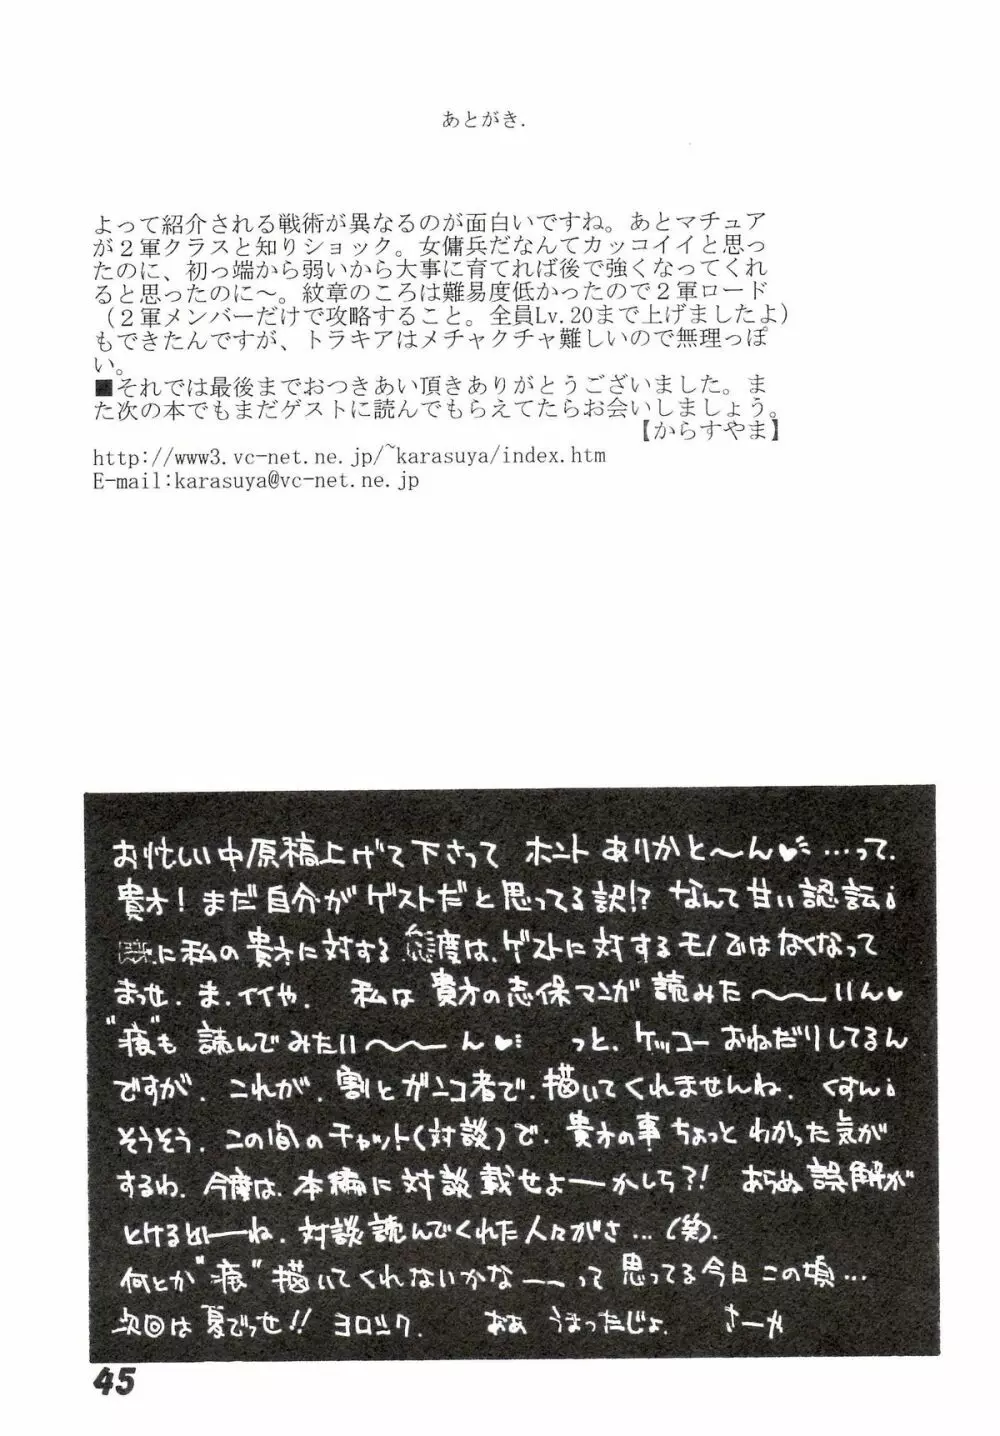 あとがき.
よって紹介される戦術が異なるのが面白いですね。あとマチュア
が２軍クラスと知りショック。女傭兵だなんてカッコイイと思っ
たのに、初っ端から弱いから大事に育てれば後で強くなってくれ
ると思ったのに～。紋章のころは難易度低かったので２軍ロード
（２軍メンバーだけで攻略すること。全員Lv.20まで上げましたよ）
もできたんですが、トラキアはメチャクチャ難しいので無理っぽ
い。
■それでは最後までおつきあい頂きありがとうございました。ま
た次の本でもまだゲストに読んでもらえてたらお会いしましょう。
【からすやま】
http://www3.vc-net.ne.jp/~karasuya/index.htm
E-mail:karasuya@vc-net.ne.jp
お忙しい中原稿上げて下さって ホント ありがと〜ん♥…って.
貴方！まだ自分がゲストだと思ってる訳!? なんて甘い認
に私の貴方に対する態度は、ゲストに対するモノではなくなって
まっせ. ま.イイや. 私は貴方の志保マンガ読みた〜〜いん♥
“痕”も 読んでみたい〜〜ん♥ っと.ケッコーおねだりしてるん
ですが. これが. 割とガンコ者で.描いてくれませんね. くすん
そうそう. この間のチャット(対談)で. 貴方の事ちょっとわかった気が
するわ. 今度は.本編に対談載せよーかしら?! あらぬ誤解が
とけるといーね. 対談読んでくれた人々がさ…(笑).
何とか“痕”描いてくれないかな――って思ってる今日この頃…
次回は夏でっせ!! ヨロシク. おあ うまったじょ. さーや
45